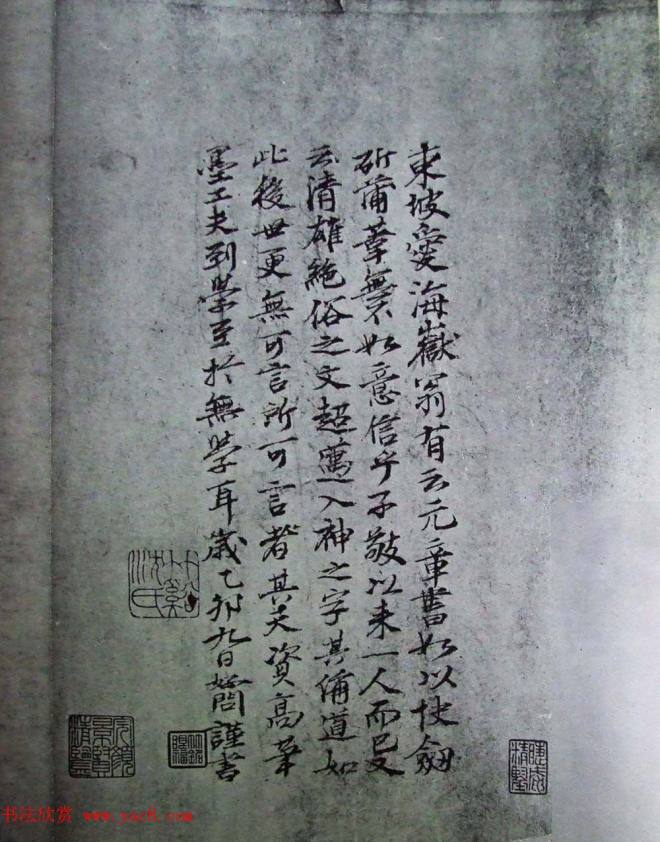 東坡愛海嶽翁有云元章書如以快劔
斫蒲葦無不如意信乎子敬以来一人而已又
云清雄絶俗之文超邁入神之字其備道如
此後世更無可言所可言者其天資高筆
墨工夫到學至於無學耳歲乙卯九日好問謹書
竹谿沈氏
书法欣赏 www.yac8.com